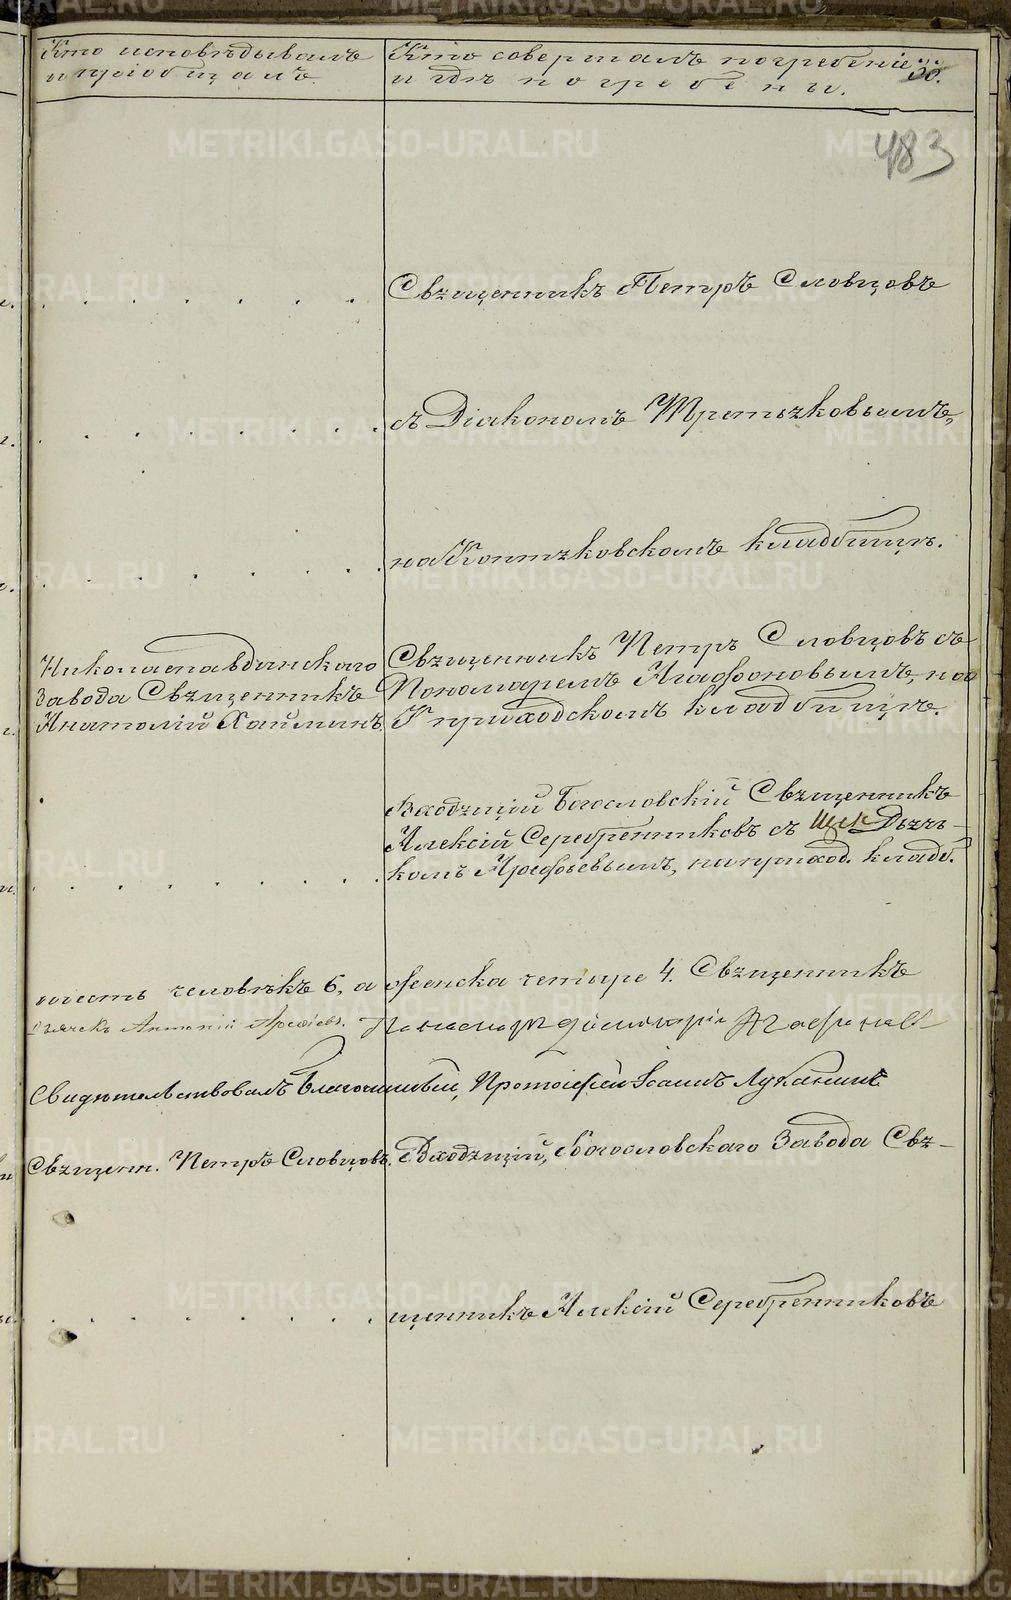 Кто исповѣдывалъ
и пріобщалъ.
Кто совершалъ погребеніе
и гдѣ погребены.
483
Священникъ Петръ Словцовъ
съ Діакономъ Третьяковымъ,
на Коптяковскомъ кладбищѣ.
Николаепавдинскаго
Завода Священникъ
Анатолій Хайминъ.
Священникъ Петръ Словцовъ съ
Пономаремъ Агафоновымъ, на
приходскомъ кладбищѣ.
Входящій Богословскій Священникъ
Алексій Серебренниковъ съ Дьяч-
комъ Арефьевымъ, на приход. кладб.
шесть человѣкъ 6, а женска четыре 4. Священникъ
Дьячекъ Антоній Арефьевъ. Пономарь Димитрій Агафоновъ
Свидѣтельствовалъ Благочинный, Протоіерей Іоаннъ Луканинъ
Священн. Петръ Словцовъ. Входящій, Богословскаго Завода Свя-
щенникъ Алексій Серебренниковъ
METRIKI.GASO-URAL.RU